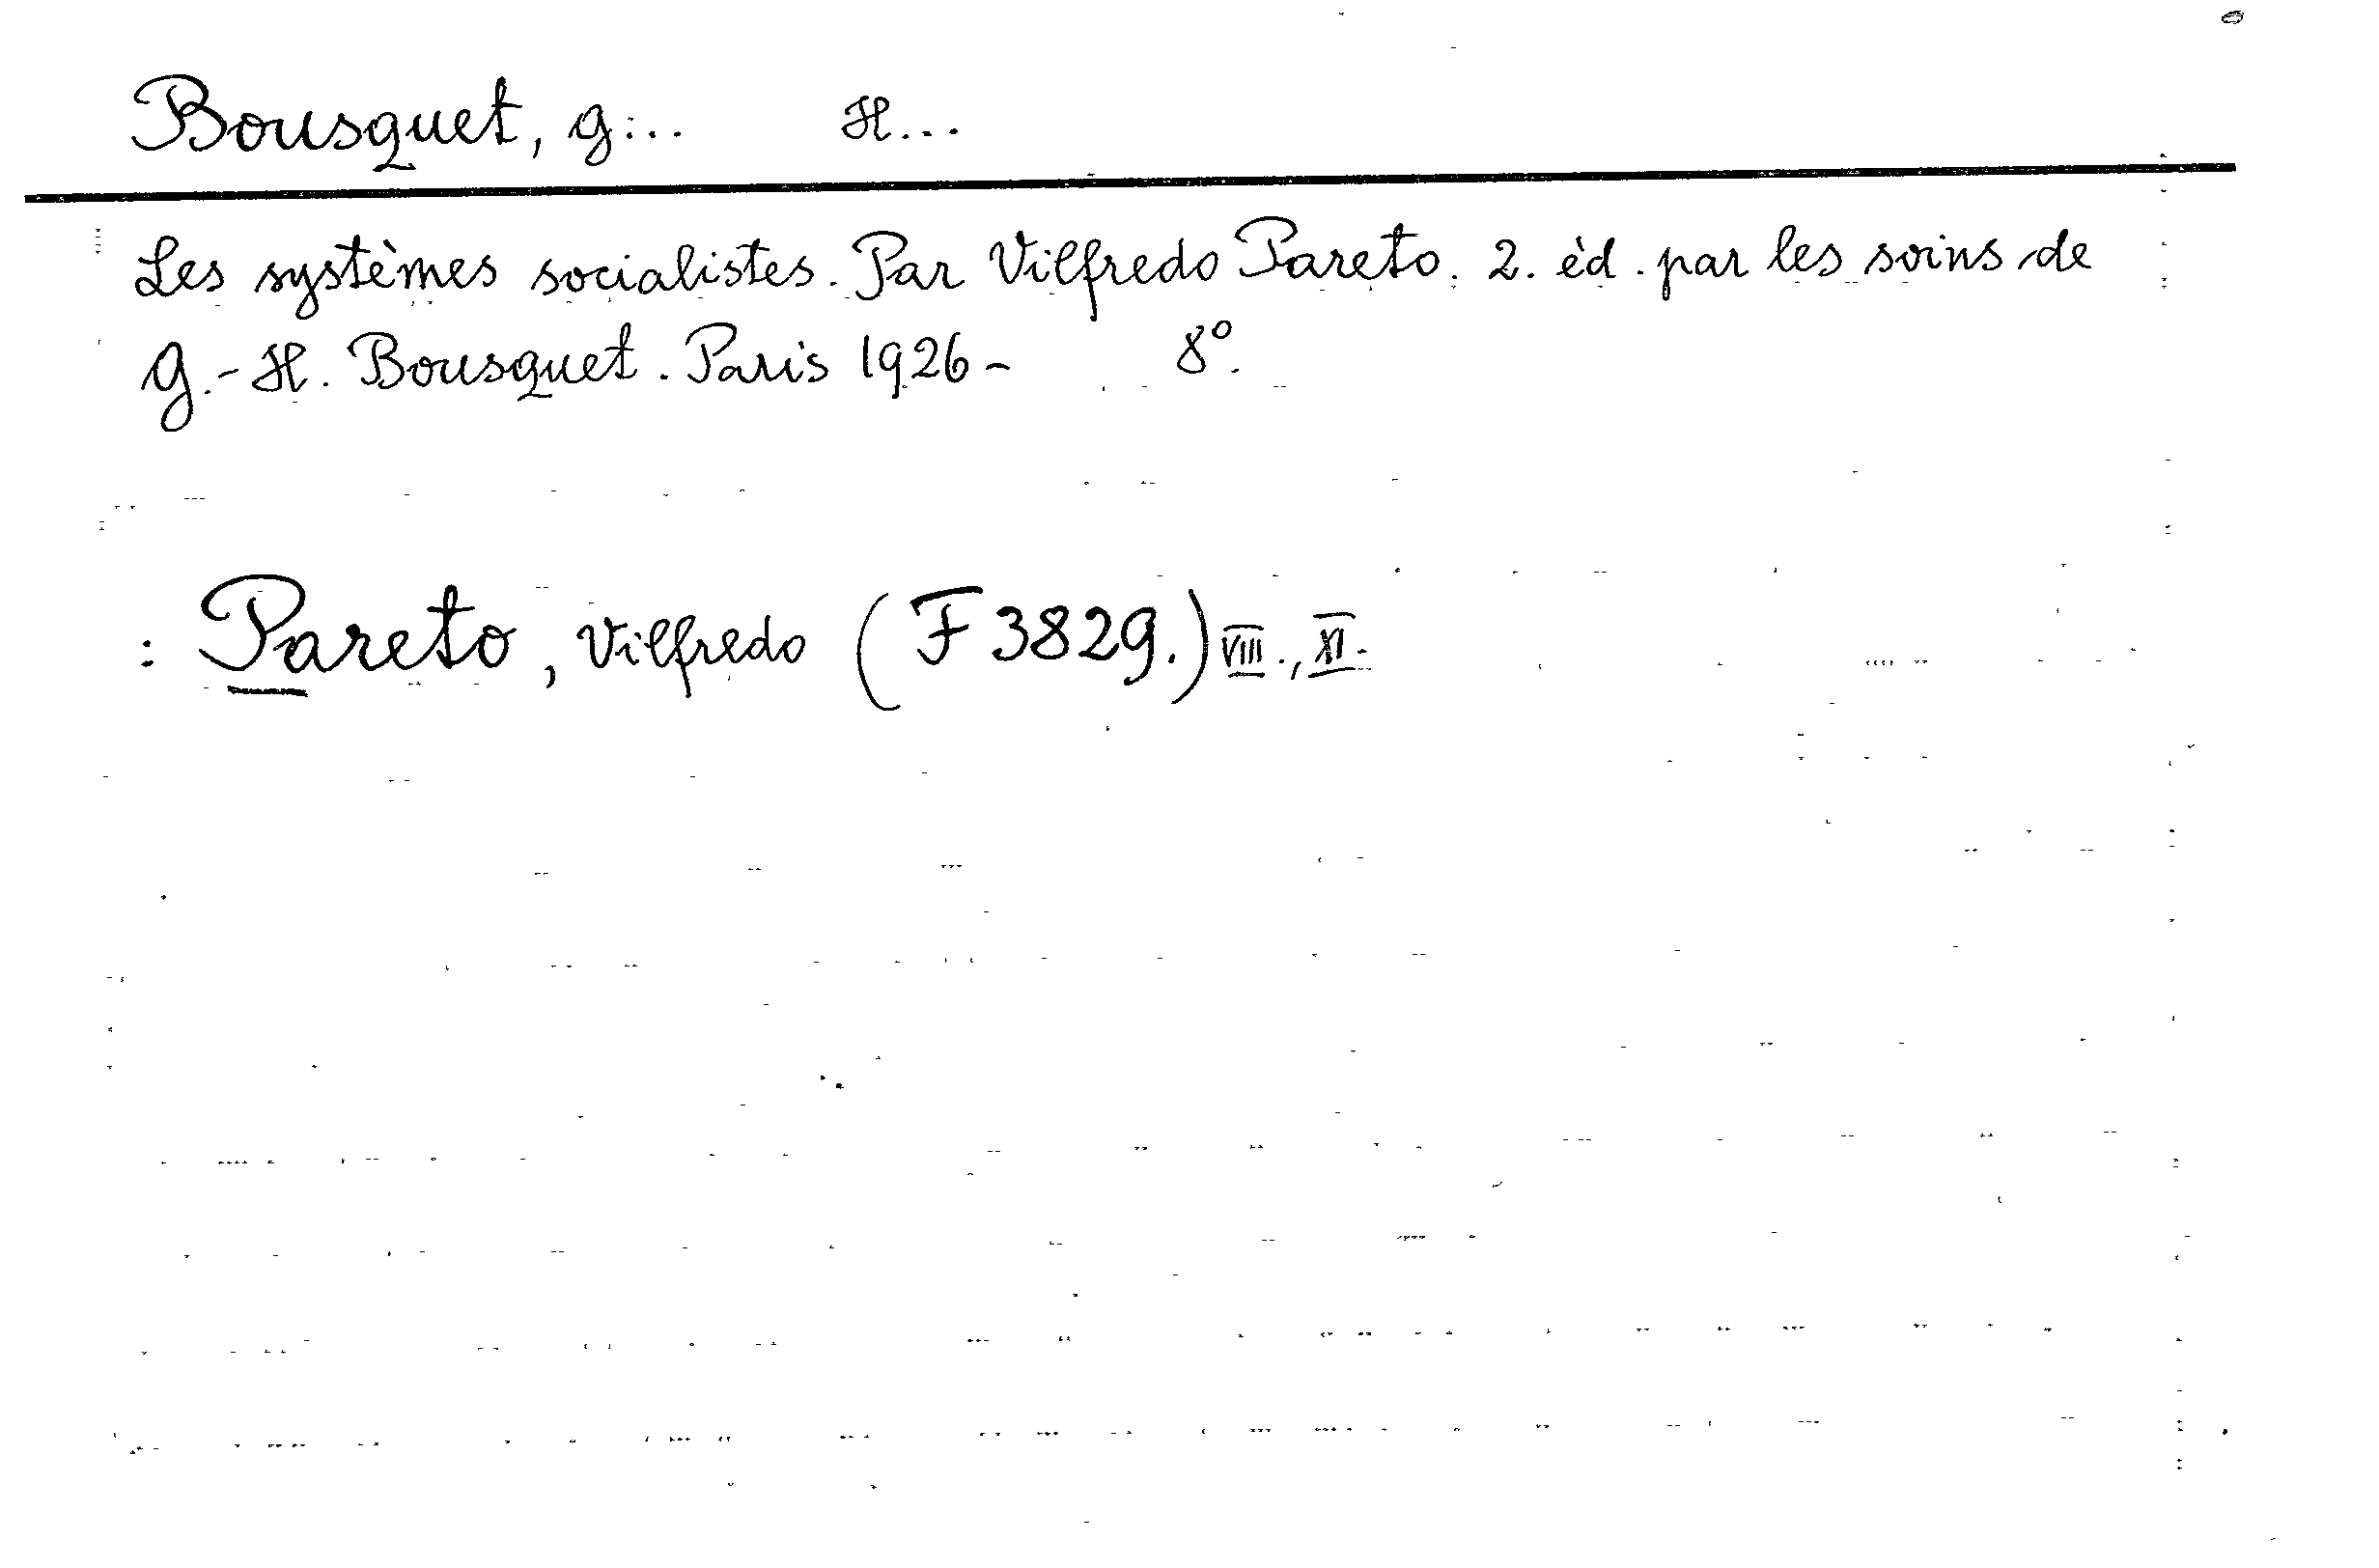 Bousquet, G... H...
Les systèmes socialistes. Par Vilfredo Pareto. 2. èd. par les soins de
G.-H. Bousquet. Paris 1926- 8°.
: Pareto, Vilfredo (F 3829.) VIII., XI.